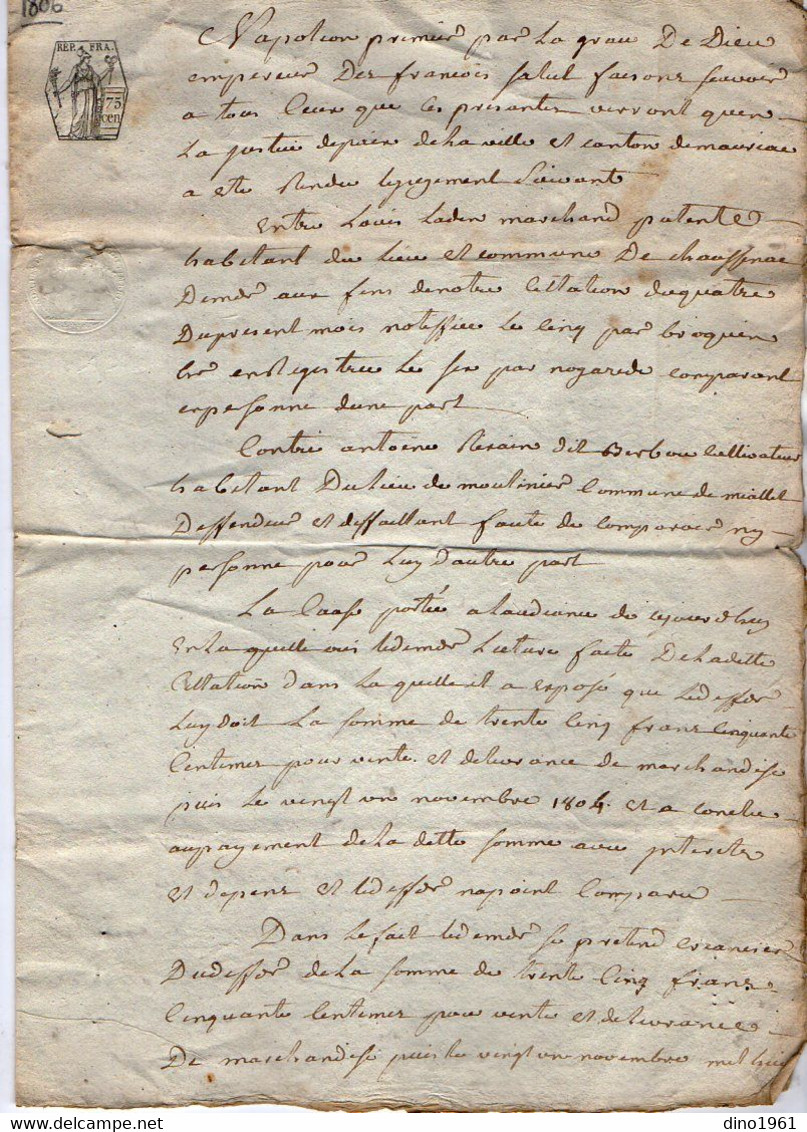 1806
REP. FRA.
75
cen
Napoleon premier par La grace De Dieu
empereur Des francois salut faisons scavoir
a tous Ceux que Ces presantes verront quen
La justice depaix dela ville et canton demauriac
a ete Rendu lejugement Suivant
Entre Louis Laden marchand patenté
habitant du lieu et commune De chaussenac
Demdr aux fins denotre Cittation duquatre
Dupresent mois notiffiée Le Cinq par broquin
her enregistrée Le six par nogarede comparant
enpersonne dune part
Contre antoine dit Cultivateur
habitant Dulieu de moulinier Commune de miallet
Deffendeur et deffaillant faute de comparoir ny
personne pour Luy dautre part
La Cause portée alaudiance de cejourdhuy
En La quelle oui ledemdr Lecture faite De Ladette
Cittation dans La quelle il a Exposé que Ledeffdr
Luy doit La somme de trente Cinq franc Cinquante
Centimes pour vente et delivrance de marchandise
puis Le vingt un novembre 1804 et a conclu
aupayement dela dette somme avec interets
et depens et ledeffdr napoint Comparu
Dans Lefait ledemdr se pretend creancier
Dudeffdr de La somme de trente Cinq franc
Cinquante Centimes pour vente et delivrance
De marchandise puis le vingt un novembre mil huit
dino1961